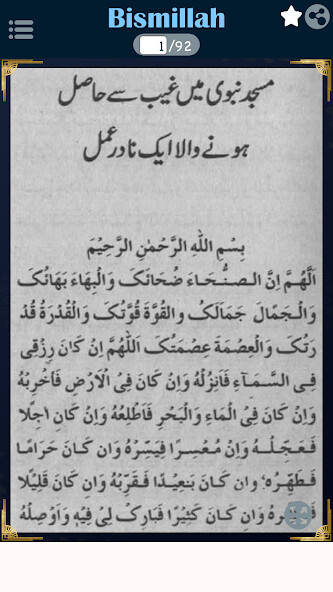 Bismillah
1/92
مسجد نبوی میں غیب سے حاصل
ہونے والا ایک نادر عمل
بِسْمِ اللّٰهِ الرَّحْمٰنِ الرَّحِيْمَ
اَلّٰهُمَّ اِنَّ الصُّحَاءَ ضُحَائَكَ وَالْبِهَاءَ بَهَائَكَ
وَالْجَمَالَ جَمَالَكُ والقُوَّةَ قُوَّتَكَ وَالْقُدْرَةَ قُدْ
رَتَكَ وَالْعِصْمَةَ عِصْمَتَكَ اَللّٰهُمَّ اِنْ كَانَ رِزْقِى
فِى السَّمَآءِ فَانْزِلْهُ وَاِنْ كَانَ فِىْ الْاَرْضِ فَاَخْرِبْهُ
وَاِنْ كَانَ فِىْ الْمَاءِ وَالْبَحْرِ فَاَطْلِعْهُ وَاِنْ كَانِ اٰجِلًا
فَعَجِّلْهُ وَاِنْ مُعْسِرًا فَيَسِّرْهُ وَاِن كَانَ حَرَامًا
فَطَهِّرْهُ وان كَانَ بَعِيْدًا فَقَرِّبْهُ وَاِن كَانَ قَلِيْلًا
وَاِن كَانَ كَثِيْرًا فَبَارِكْ لِىْ فِيْهِ وَاَوْصِلْهُ